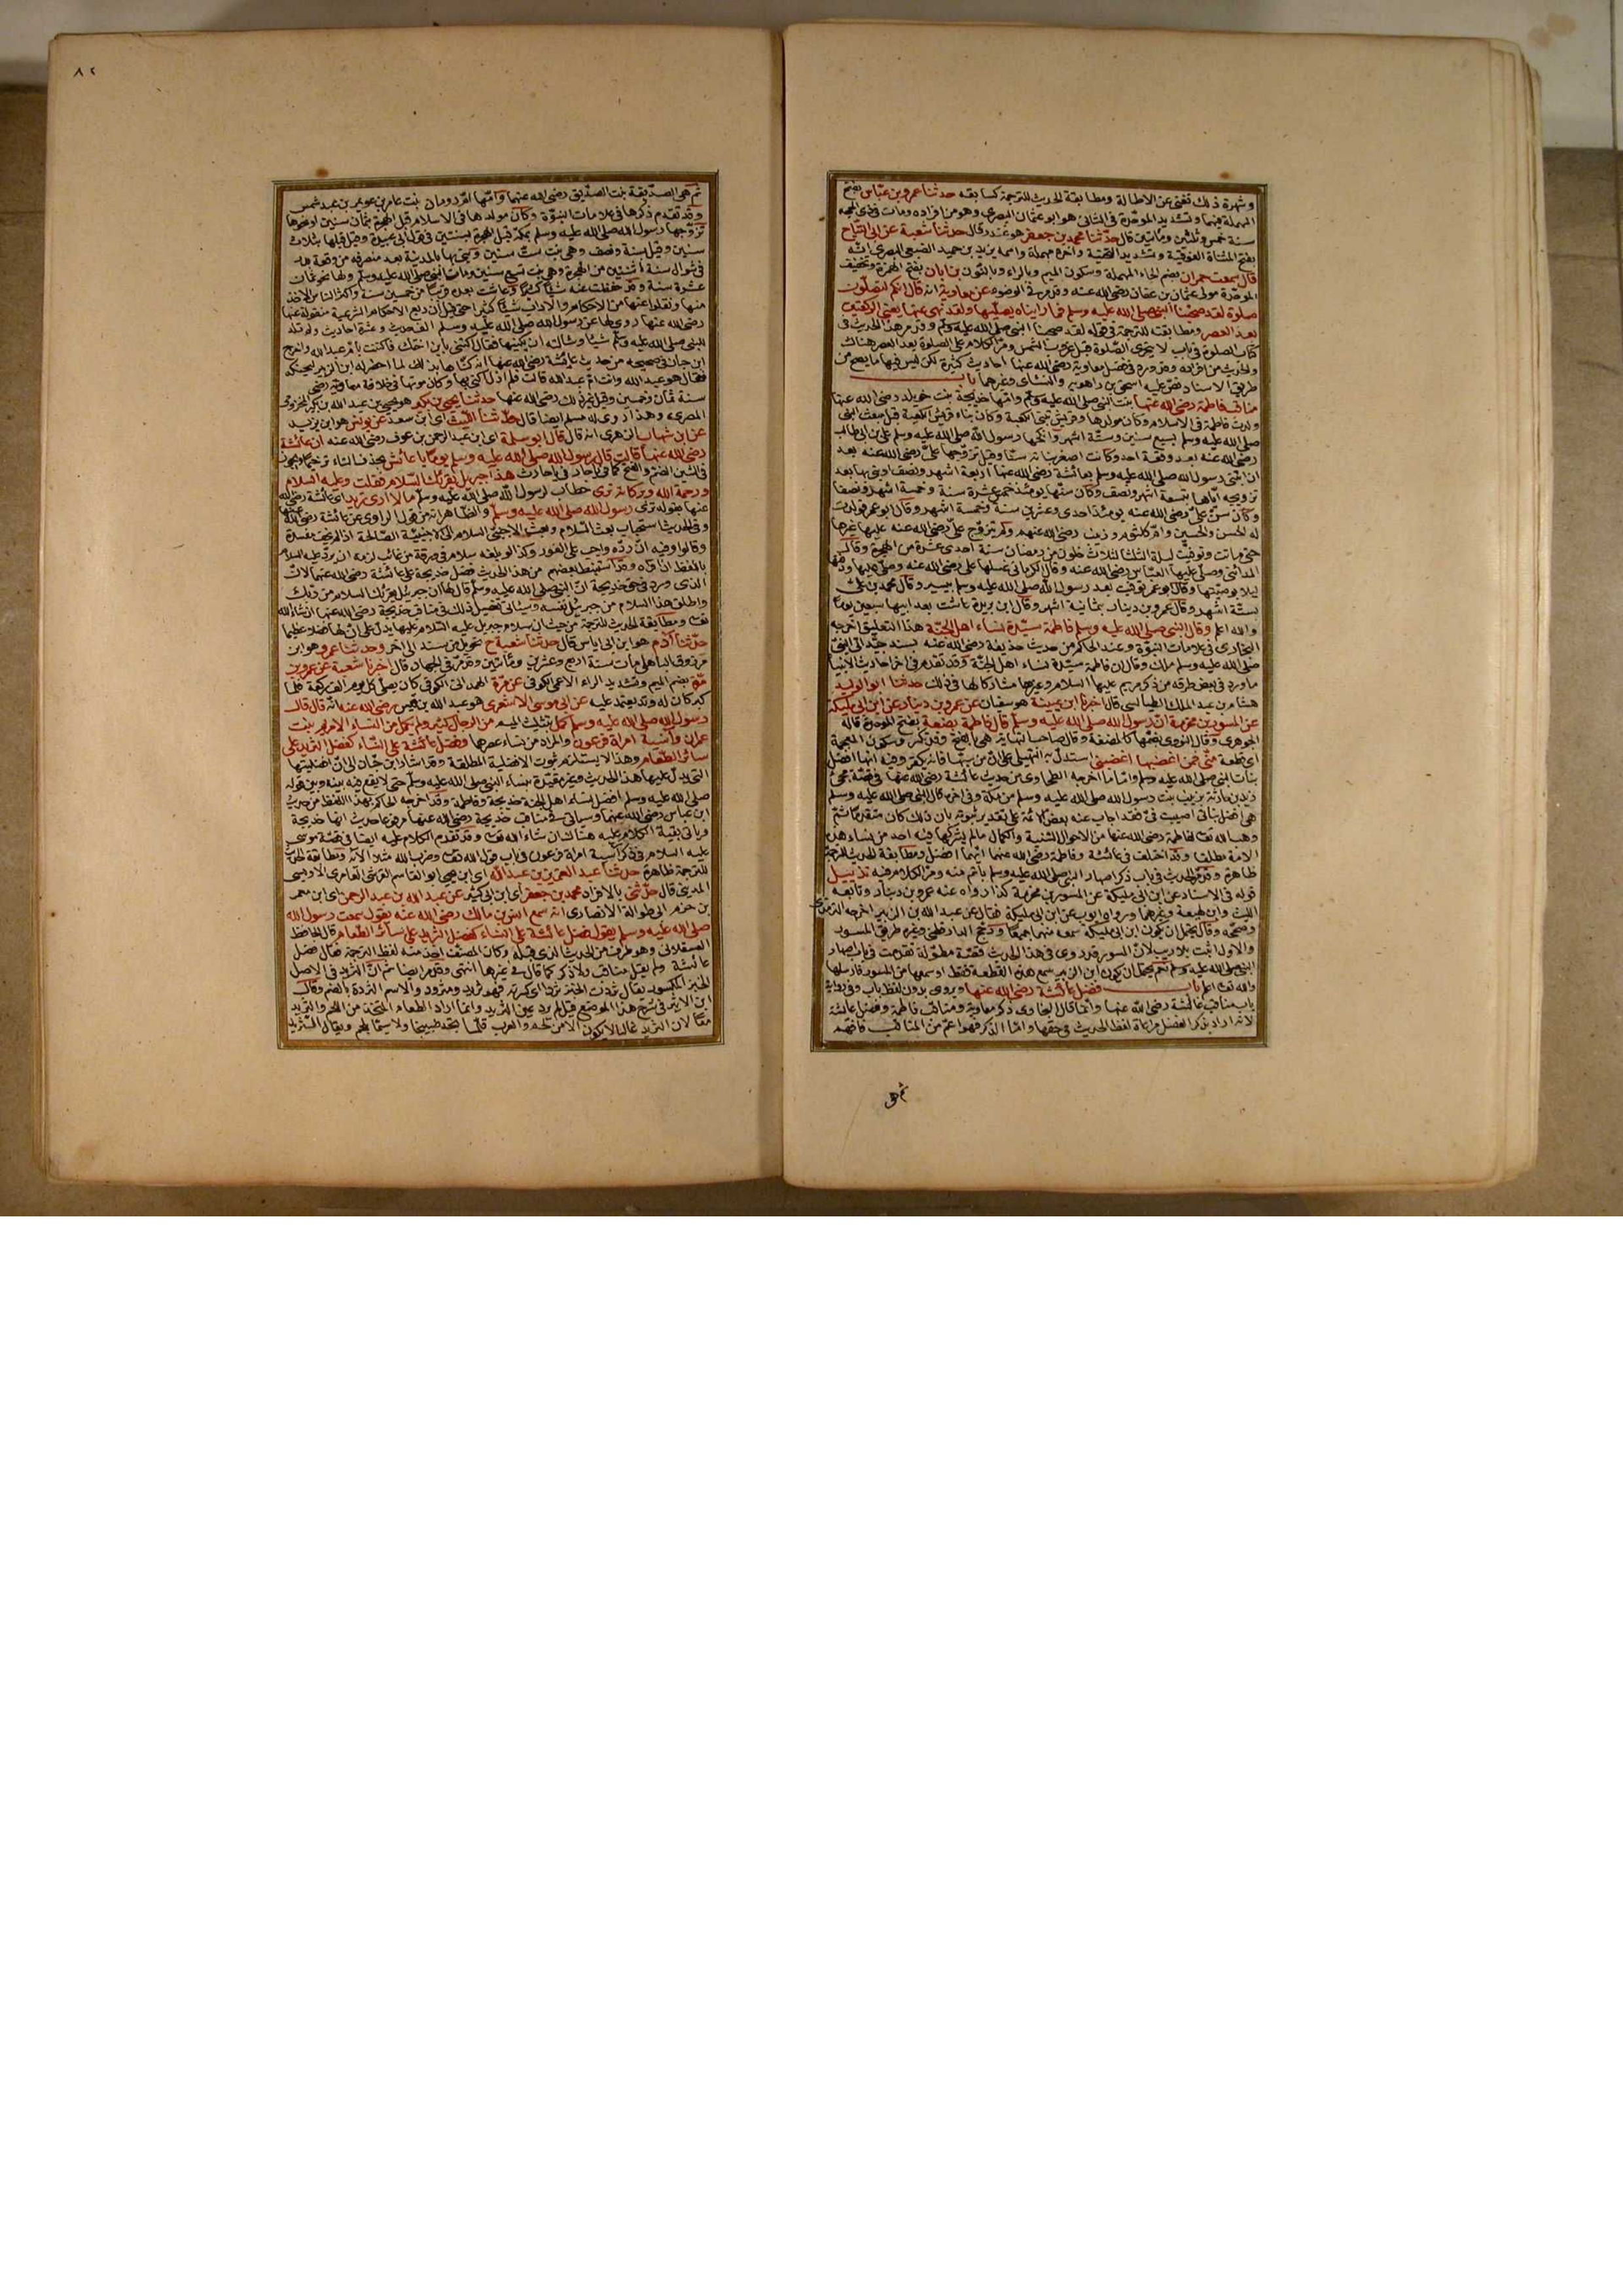 وشهرة ذلك تغني عن الاطالة ومطابقة الحديث للترجمة كسابقه حدثنا عمرو بن عباس بفتح
المهملة فيهما وتشديد الموحدة في الثاني هو ابو عثمان البصري وهو من افراده ومات في ذي الحجة
سنة خمس وثلثين ومائتين قال حدثنا محمد بن جعفر هو غندر قال حدثنا شعبة عن ابي التياح
بفتح المثناة الفوقية وتشديد التحتية وآخره مهملة واسمه يزيد بن حميد الضبعي البصري انه
قال سمعت حمران بضم الحاء المهملة وسكون الميم وبالراء وبالنون بن ابان بفتح الهمزة وتخفيف
الموحدة مولى عثمان بن عفان رضي الله عنه وقد مر في الوضوء عن معاوية انه قال انكم لتصلون
صلوة لقد صحبنا النبي صلى الله عليه وسلم فما رأيناه يصليها ولقد نهى عنها يعني الركعتين
بعد العصر ومطابقته للترجمة في قوله لقد صحبنا النبي صلى الله عليه وسلم وقد مر هذا الحديث في
كتاب الصلوة في باب لا يتحرى الصلوة قبل غروب الشمس ومر الكلام على الصلوة بعد العصر هناك
والحديث من افراده وقد ورد في فضل معاوية رضي الله عنه احاديث كثيرة لكن ليس فيها ما يصح من
طريق الاسناد نص عليه اسحق بن راهويه والنسائي وغيرهما باب
مناقب فاطمة رضي الله عنها بنت النبي صلى الله عليه وسلم وامها خديجة بنت خويلد رضي الله عنها
ولدت فاطمة في الاسلام وكان مولدها وقريش تبني الكعبة وكان بناء قريش الكعبة قبل مبعث النبي
صلى الله عليه وسلم بسبع سنين وستة اشهر وانكحها رسول الله صلى الله عليه وسلم علي بن ابي طالب
رضي الله عنه بعد وقعة احد وكانت اصغر بناته سنا وقيل تزوجها علي رضي الله عنه بعد
ان ابتنى رسول الله صلى الله عليه وسلم بعائشة رضي الله عنها اربعة اشهر ونصف وبنى بها بعد
تزويجه اياها بتسعة اشهر ونصف وكان سنها يومئذ خمس عشرة سنة وخمسة اشهر ونصفا
وكان سن علي رضي الله عنه يومئذ احدى وعشرين سنة وخمسة اشهر وقال ابو عمر فولدت
له الحسن والحسين وام كلثوم وزينب رضي الله عنهم ولم يتزوج علي رضي الله عنه عليها غيرها
حتى ماتت وتوفيت ليلة الثلثا لثلاث خلون من رمضان سنة احدى عشرة من الهجرة وقال
المدائني وصلى عليها العباس رضي الله عنه وقال الكرماني غسلها علي رضي الله عنه وصلى عليها ودفنها
ليلا بوصيتها وقال ابو عمر توفيت بعد رسول الله صلى الله عليه وسلم بيسير وقال محمد بن علي
بستة اشهر وقال عمرو بن دينار بثمانية اشهر وقال ابن بريدة عاشت بعد ابيها سبعين يوما
والله اعلم وقال النبي صلى الله عليه وسلم فاطمة سيدة نساء اهل الجنة هذا التعليق اخرجه
البخاري في علامات النبوة وعند الحاكم من حديث حذيفة رضي الله عنه بسند جيد اتى النبي
صلى الله عليه وسلم ملك وقال ان فاطمة سيدة نساء اهل الجنة وقد تقدم في آخر احاديث الانبياء
ما ورد في بعض طرقه من ذكر مريم عليها السلام وغيرها مشاركا لها في ذلك حدثنا ابو الوليد
هشام بن عبد الملك الطيالسي قال اخبرنا ابن عيينة هو سفيان عن عمرو بن دينار عن ابن ابي مليكة
عن المسور بن مخرمة ان رسول الله صلى الله عليه وسلم قال فاطمة بضعة بفتح الموحدة قاله
الجوهري وقال النووي بضمها كالمضغة وقال صاحب النهاية هي بالفتح وقد تكسر وسكون المعجمة
اي قطعة مني فمن اغضبها اغضبني استدل به السهيلي على ان من سبها فانه يكفر وفيه انها افضل
بنات النبي صلى الله عليه وسلم واما ما اخرجه الطحاوي من حديث عائشة رضي الله عنها في قصة مجيء
زيد بن حارثة بزينب بنت رسول الله صلى الله عليه وسلم من مكة وفي آخره قال النبي صلى الله عليه وسلم
هي افضل بناتي اصيبت في فقد اجاب عنه بعض الائمة على تقدير ثبوته بان ذلك كان متقدما ثم
وهب الله تعالى لفاطمة رضي الله عنها من الاحوال السنية والكمال ما لم يشركها فيه احد من نساء هذه
الامة مطلقا وقد اختلف في عائشة وفاطمة رضي الله عنهما ايتهما افضل ومطابقة الحديث للترجمة
ظاهرة وقد مر الحديث في باب ذكر اصهار النبي صلى الله عليه وسلم باتم منه ومر الكلام فيه تذييل
قوله في الاسناد عن ابن ابي مليكة عن المسور بن مخرمة كذا رواه عنه عمرو بن دينار وتابعه
الليث وابن لهيعة وغيرهما ورواه ايوب عن ابن ابي مليكة فقال عن عبد الله بن الزبير اخرجه الترمذي
وصححه وقال يحتمل ان يكون ابن ابي مليكة سمعه منهما جميعا ورجح الدارقطني وغيره طريق المسور
والاول اثبت بلا ريب لان المسور قد روى في هذا الحديث قصة مطولة تقدمت في باب اصهار
النبي صلى الله عليه وسلم نعم يحتمل ان يكون ابن الزبير سمع هذه القطعة فقط او سمعها من المسور فارسلها
والله تعالى اعلم باب فضل عائشة رضي الله عنها ويروى بدون لفظ باب وفي رواية
باب مناقب عائشة رضي الله عنها وانما قال البخاري ذكر معاوية ومناقب فاطمة وفضل عائشة
لانه اراد بذكر الفضل مراعاة لفظ الحديث في حقها واما الذكر فهو اعم من المناقب فافهم
ثم هي
٨٢
ثم هي الصديقة بنت الصديق رضي الله عنهما وامها ام رومان بنت عامر بن عويمر بن عبد شمس
وقد تقدم ذكرها في علامات النبوة وكان مولدها في الاسلام قبل الهجرة بثمان سنين او نحوها
تزوجها رسول الله صلى الله عليه وسلم بمكة قبل الهجرة بسنتين في قول ابي عبيدة وقيل قبلها بثلاث
سنين وقيل بسنة ونصف وهي بنت ست سنين وبنى بها بالمدينة بعد منصرفه من وقعة بدر
في شوال سنة اثنتين من الهجرة وهي بنت تسع سنين ومات النبي صلى الله عليه وسلم ولها نحو ثمان
عشرة سنة وقد حفظت عنه شيئا كثيرا وعاشت بعده قريبا من خمسين سنة واكثر الناس الاخذ
منها ونقلوا عنها من الاحكام والآداب شيئا كثيرا حتى قيل ان ربع الاحكام الشرعية منقولة عنها
رضي الله عنها روي لها عن رسول الله صلى الله عليه وسلم الف حديث وعشرة احاديث ولم تلد
للنبي صلى الله عليه وسلم شيئا وسألته ان يكنيها فقال اكتني بابن اختك فاكتنت بام عبد الله واخرج
ابن حبان في صحيحه من حديث عائشة رضي الله عنها انه كناها بذلك لما احضر له ابن الزبير ليحنكه
فقال هو عبد الله وانت ام عبد الله قالت فلم ازل اكنى بها وكان موتها في خلافة معاوية رضي
سنة ثمان وخمسين وقيل غير ذلك رضي الله عنها حدثنا يحيى بن بكير هو يحيى بن عبد الله بن بكير المخزومي
المصري وهذا روى له مسلم ايضا قال حدثنا الليث اي ابن سعد عن يونس هو ابن يزيد
عن ابن شهاب الزهري انه قال قال ابو سلمة اي ابن عبد الرحمن بن عوف رضي الله عنه ان عائشة
رضي الله عنها قالت قال رسول الله صلى الله عليه وسلم يوما يا عائش بحذف التاء ترخيما ويجوز
في الشين الضم والفتح كما في يا حار في يا حارث هذا جبريل يقرئك السلام فقلت وعليه السلام
ورحمة الله وبركاته ترى خطاب لرسول الله صلى الله عليه وسلم ما لا ارى تريد اي عائشة رضي الله
عنها بقوله ترى رسول الله صلى الله عليه وسلم والظاهر انه من قول الراوي عن عائشة رضي الله عنها
وفي الحديث استحباب بعث السلام وبعث الاجنبي السلام الى الاجنبية الصالحة اذا لم يخف مفسدة
وقالوا وفيه ان رده واجب على الفور وكذا لو بلغه سلام في ورقة من غائب لزمه ان يرد عليه السلام
باللفظ اذا قرأه وقد استنبط بعضهم من هذا الحديث فضل خديجة على عائشة رضي الله عنهما لان
الذي ورد في حق خديجة ان النبي صلى الله عليه وسلم قال لها ان جبريل يقرئك السلام من ربك
واطلق هذا السلام من جبريل نفسه وسيأتي تفصيل ذلك في مناقب خديجة رضي الله عنها ان شاء الله
تعالى ومطابقة الحديث للترجمة من حيث ان سلام جبريل عليه السلام عليها يدل على ان لها فضلا عظيما
حدثنا آدم هو ابن ابي اياس قال حدثنا شعبة ح تحويل من سند الى آخر وحدثنا عمرو هو ابن
مرزوق الباهلي مات سنة اربع وعشرين ومائتين وقد مر في الجهاد قال اخبرنا شعبة عن عمرو بن
مرة بضم الميم وتشديد الراء الاعمى الكوفي عن مرة الهمداني الكوفي كان يصلي كل يوم الف ركعة فلما
كبر كان له وتد يعتمد عليه عن ابي موسى الاشعري هو عبد الله بن قيس رضي الله عنه انه قال قال
رسول الله صلى الله عليه وسلم كمل بتثليث الميم من الرجال كثير ولم يكمل من النساء الا مريم بنت
عمران وآسية امرأة فرعون والمراد من نساء عصرها وفضل عائشة على النساء كفضل الثريد على
سائر الطعام وهذا لا يستلزم ثبوت الافضلية المطلقة وقد اشار ابن حبان الى ان افضليتها
التي يدل عليها هذا الحديث وغيره مقيدة بنساء النبي صلى الله عليه وسلم حتى لا يقع فيه بينه وبين قوله
صلى الله عليه وسلم افضل نساء اهل الجنة خديجة وفاطمة وقد اخرجه الحاكم بهذا اللفظ من حديث
ابن عباس رضي الله عنهما وسيأتي في مناقب خديجة رضي الله عنها من حديث انها خديجة
ويأتي بقية الكلام عليه هناك ان شاء الله تعالى وقد تقدم الكلام عليه ايضا في قصة موسى
عليه السلام في ذكر آسية امرأة فرعون في باب قول الله تعالى وضرب الله مثلا الآية ومطابقة الحديث
للترجمة ظاهرة حدثنا عبد العزيز بن عبد الله اي ابن يحيى ابو القاسم القرشي العامري الاويسي
المديني قال حدثني بالافراد محمد بن جعفر اي ابن ابي كثير عن عبد الله بن عبد الرحمن اي ابن معمر
بن حزم ابي طوالة الانصاري انه سمع انس بن مالك رضي الله عنه يقول سمعت رسول الله
صلى الله عليه وسلم يقول فضل عائشة على النساء كفضل الثريد على سائر الطعام قال الحافظ
العسقلاني وهو طرف من الحديث الذي قبله وكان المصنف اخذ منه لفظ الترجمة فقال فضل
عائشة ولم يقل مناقب ولا ذكر كما قال في غيرها انتهى وقد مر ايضا ثم ان الثريد في الاصل
الخبز المكسور يقال ثردت الخبز ثردا اي كسرته فهو ثريد ومثرود والاسم الثردة بالضم وقال
ابن الاثير في شرح هذا الموضع قيل لم يرد عين الثريد وانما اراد الطعام المتخذ من اللحم والثريد
معا لان الثريد غالبا لا يكون الا من لحم والعرب قلما تجد طبيخا ولا سيما بلحم ويقال الثريد